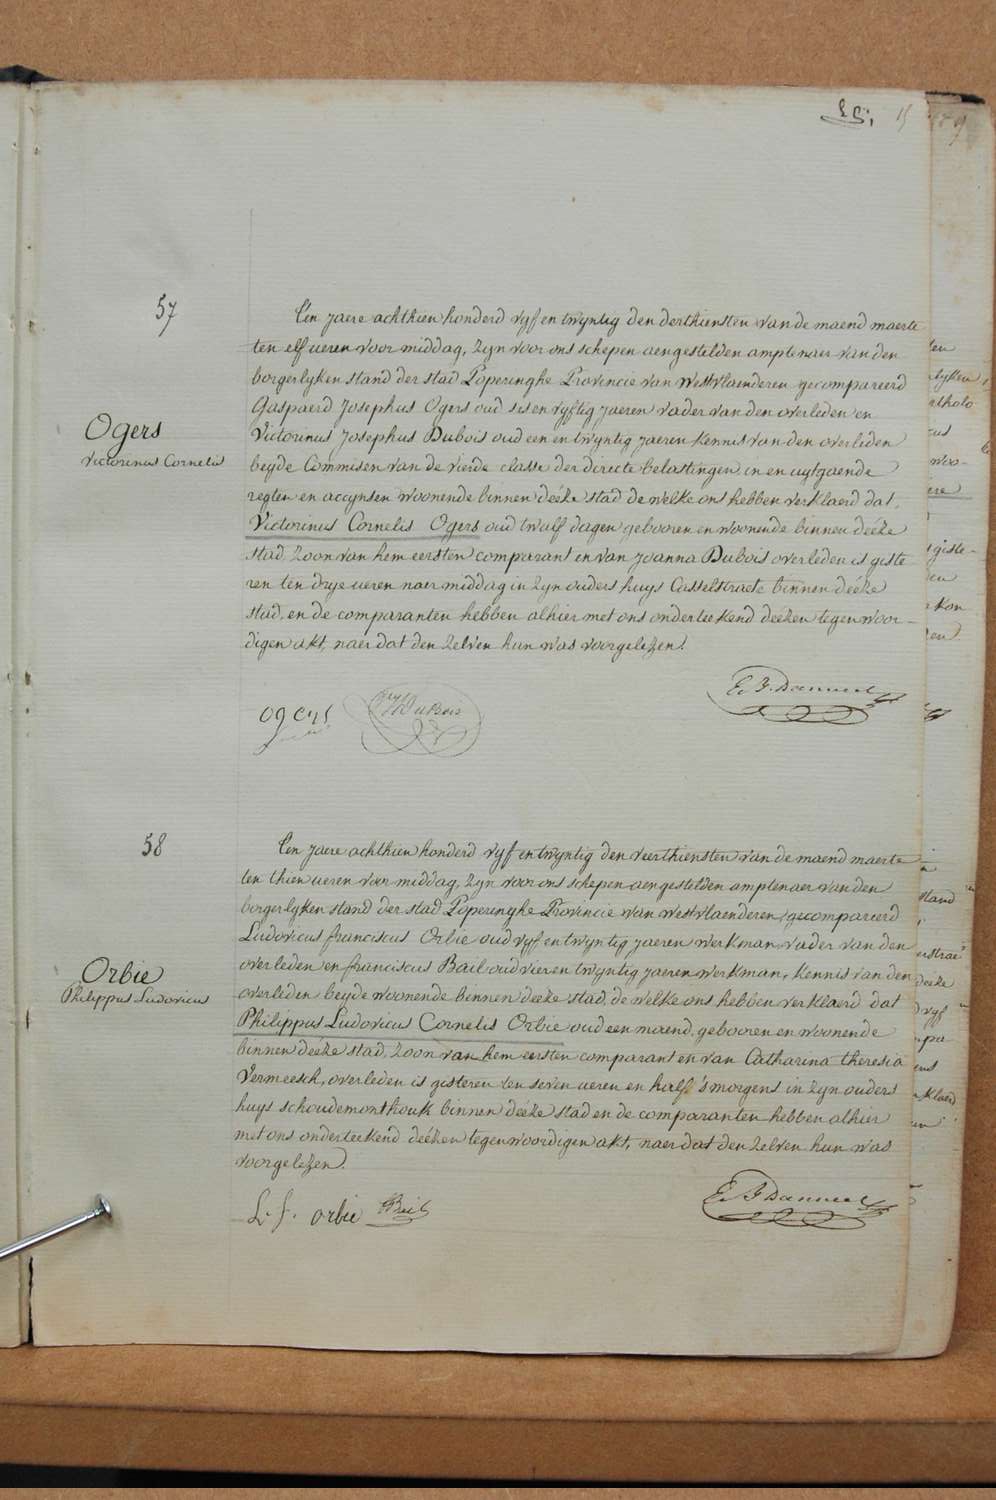 15
57
Een jaere achthien honderd vyf en twyntig den derthiensten van de maend maerte
ten elf ueren voor middag, zyn voor ons schepen aengestelden amptenaer van den
borgerlyken stand der stad Poperinghe Provincie van Westvlaenderen gecompareerd
Gaspaerd Josephus Ogers oud ses en vyftig jaeren vader van den overleden en
Victorinus Josephus Dubois oud een en twyntig jaeren kennis van den overleden
beyde Commisen van de vierde classe der directe belastingen in en uytgaende
regten en accynsen woonende binnen deéze stad de welke ons hebben verklaerd dat
Victorinus Cornelis Ogers oud twalf dagen gebooren en woonende binnen deéze
stad, zoon van hem eersten comparant en van Joanna Dubois overleden is giste
ren ten drye ueren naer middag in zyn ouders huys Casselstraete binnen deéze
stad, en de comparanten hebben alhier met ons onderteekend deézen tegenwoor-
digen akt, naer dat den zelven hun was voorgelezen.
Ogers
Victorinus Cornelis
ogers
DuBois
58
Een jaere achthien honderd vyf en twyntig den veerthiensten van de maend maerte
ten thien ueren voor middag, zyn voor ons schepen aengestelden amptenaer van den
borgerlyken stand der stad Poperinghe Provincie van Westvlaenderen, gecompareerd
Ludovicus franciscus Orbie oud vyf en twyntig jaeren werkman, vader van den
overleden en franciscus Bail oud vier en twyntig jaeren werkman, kennis van den
overleden beyde woonende binnen deéze stad, de welke ons hebben verklaerd dat
Philippus Ludovicus Cornelis Orbie oud een maend, gebooren en woonende
binnen deéze stad, zoon van hem eersten comparant en van Catharina theresia
Vermeesch, overleden is gisteren ten seven ueren en half 's morgens in zyn ouders
huys schoudemonthouk binnen deéze stad en de comparanten hebben alhier
met ons onderteekend deézen tegenwoordigen akt, naer dat den zelven hun was
voorgelezen.
Orbie
Philippus Ludovicus
L. f. orbie
Bail